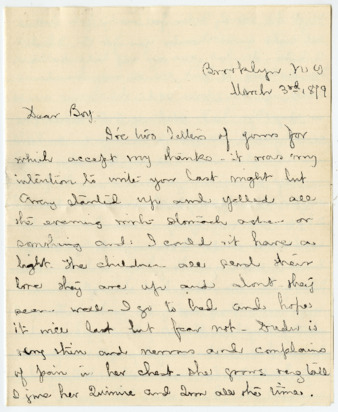 Brooklyn N Y
March 3rd, 1879
Dear Boy.
I've two letters of yours for
which accept my thanks - it was my
intention to write you last night but
started up and yelled all
the evening with stomach ache or
something and I could n't have a
light. The children all send their
love they are up and about. they
seem well - I go to bed and hope
it will last but fear not - is
very thin and nervous and complains
of pain in her chest. She grows very tall
I give her Quinine and Iron all the time.